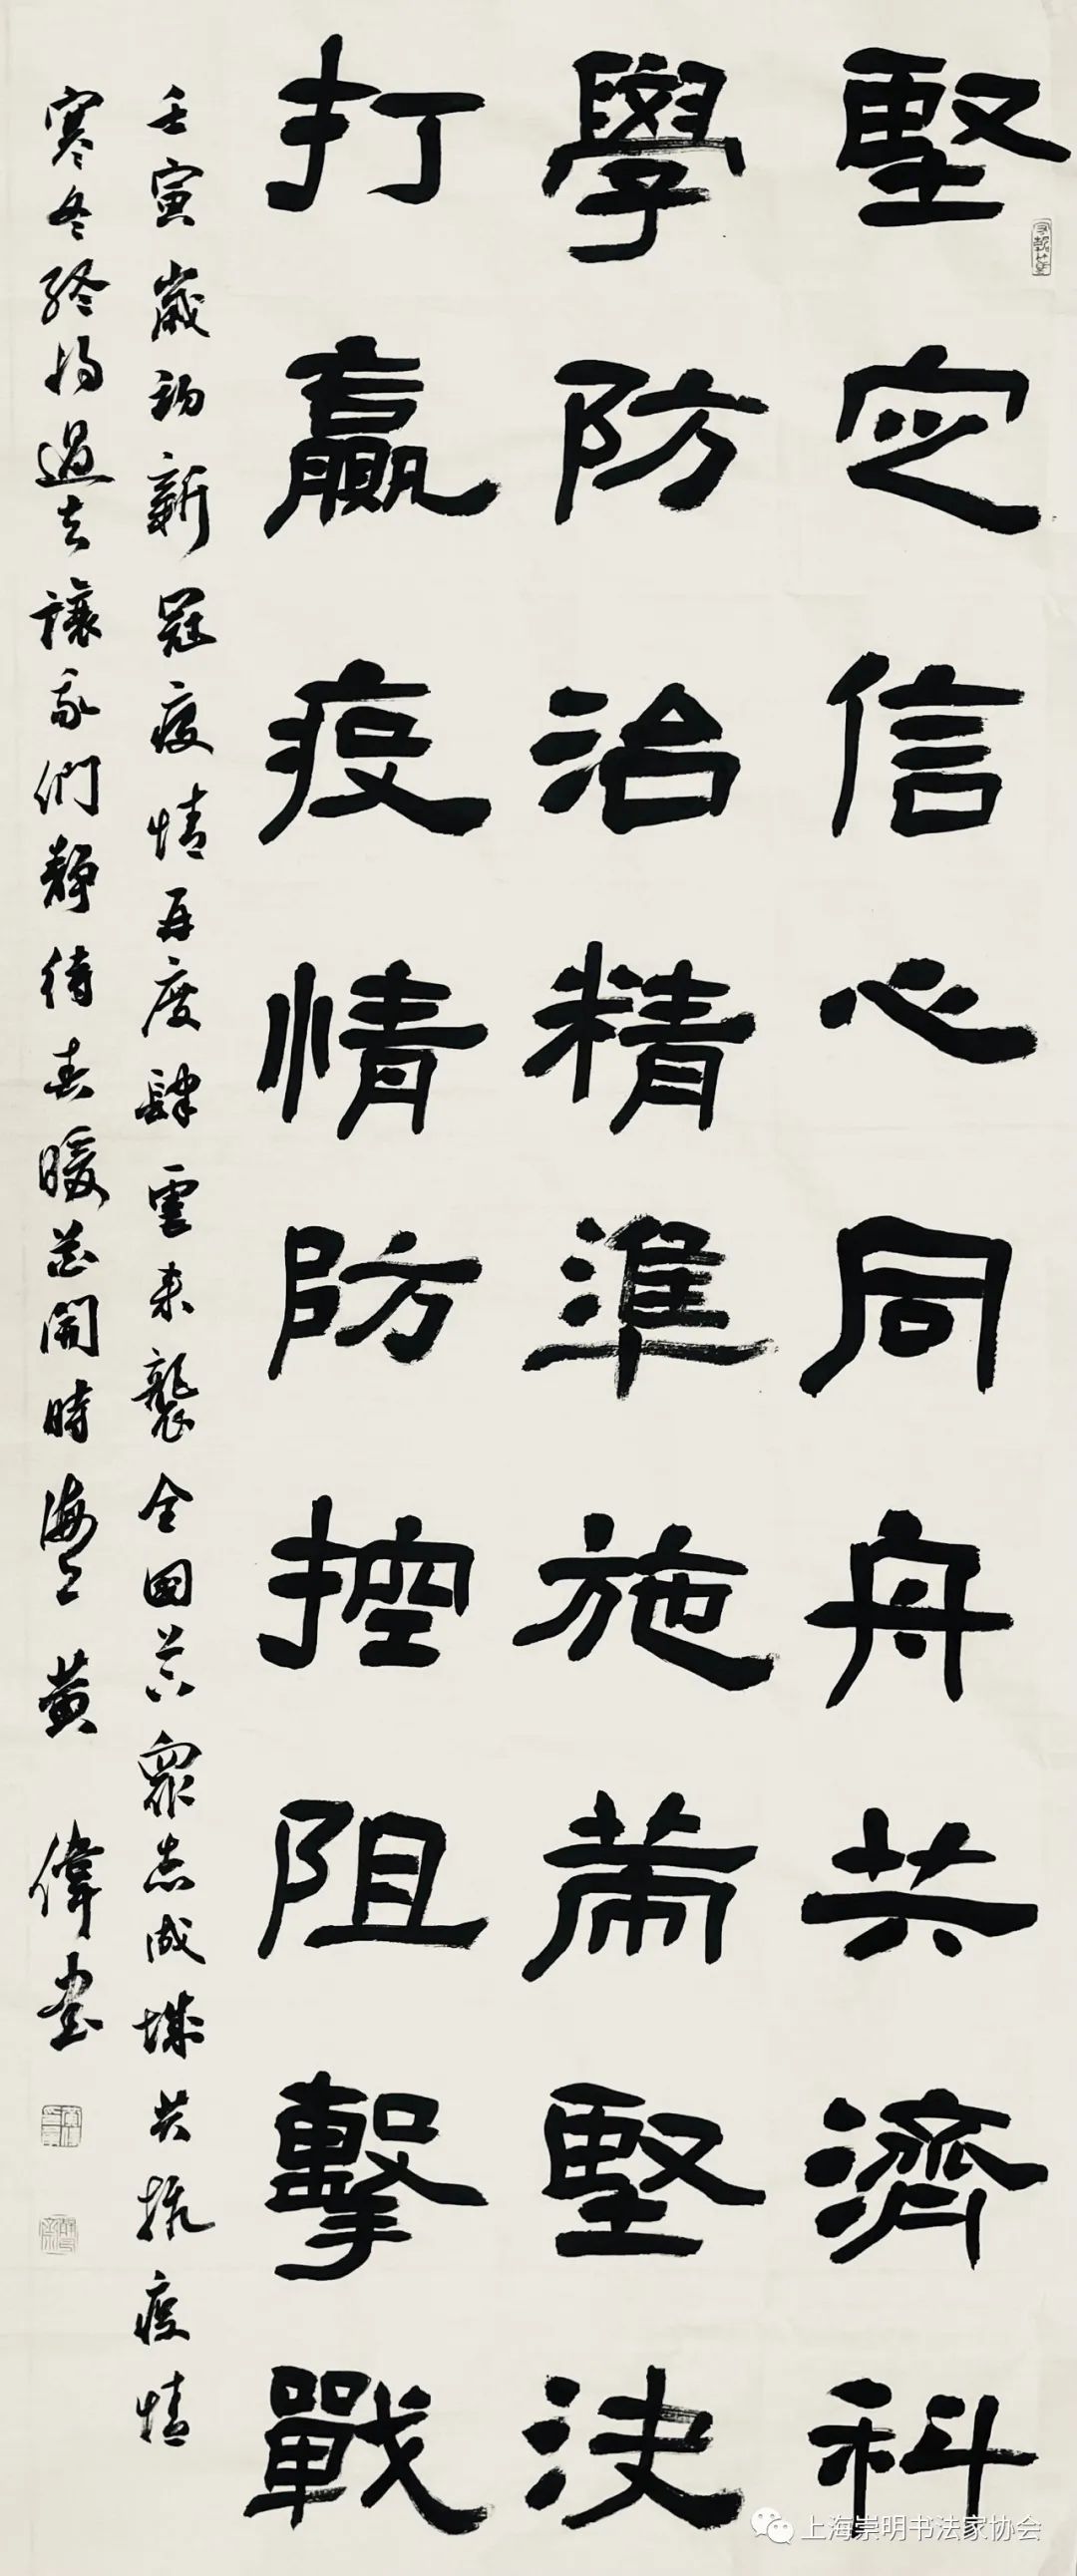 堅定信心同舟共濟科
學防治精準施策堅決
打贏疫情防控阻擊戰
壬寅歲初新冠疫情再度肆虐来襲全國上下衆志成城共抗疫情
寒冬終將過去讓我們靜待春暖花開時海上黃偉書
上海崇明书法家协会